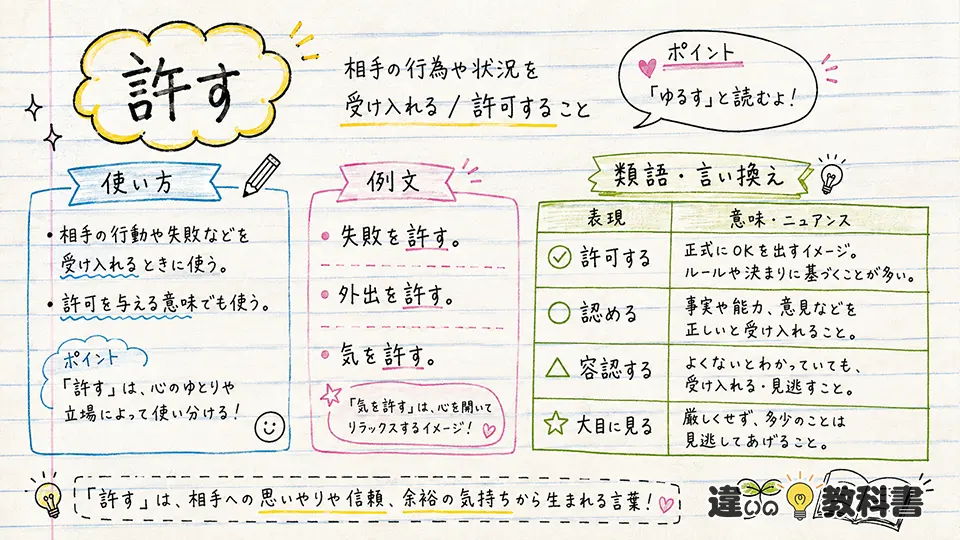 許す
相手の行為や状況を
受け入れる / 許可すること
ポイント
「ゆるす」と読むよ！
使い方
・相手の行動や失敗などを
受け入れるときに使う。
・許可を与える意味でも使う。
ポイント
「許す」は、心のゆとりや
立場によって使い分ける！
例文
・失敗を許す。
・外出を許す。
・気を許す。
「気を許す」は、心を開いて
リラックスするイメージ！
類語・言い換え
表現 意味・ニュアンス
許可する 正式にOKを出すイメージ。
ルールや決まりに基づくことが多い。
認める 事実や能力、意見などを
正しいと受け入れること。
容認する よくないとわかっていても、
受け入れる・見逃すこと。
大目に見る 厳しくせず、多少のことは
見逃してあげること。
「許す」は、相手への思いやりや信頼、余裕の気持ちから生まれる言葉！
違いの教科書